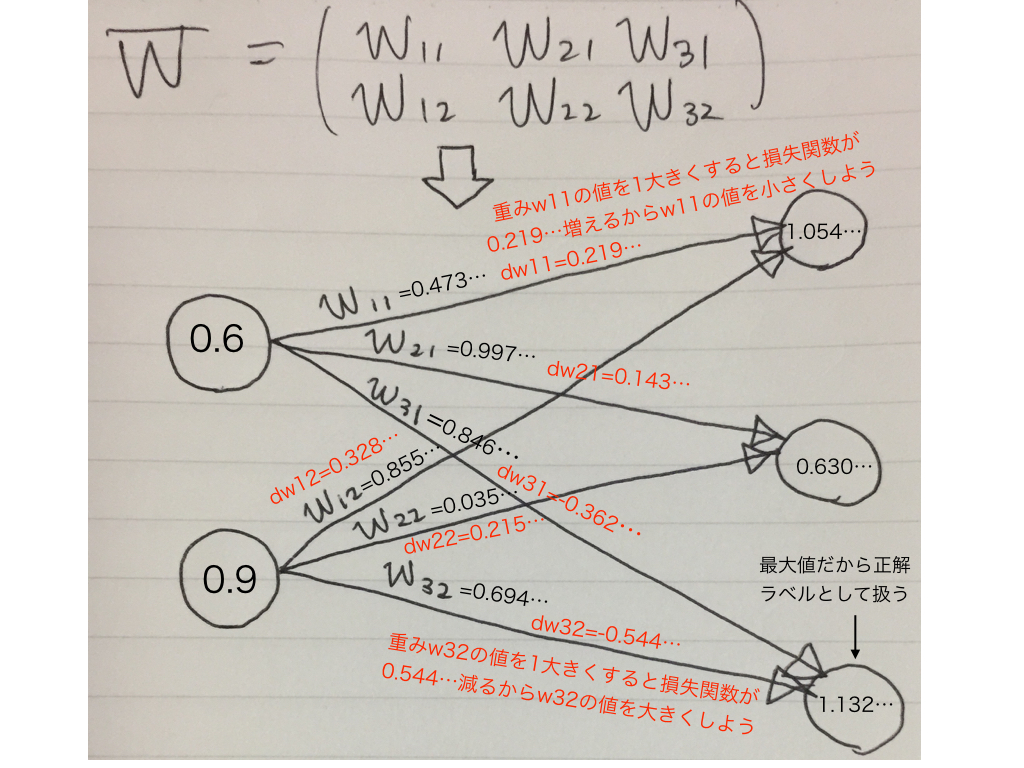 W = ( W11 W21 W31
W12 W22 W32 )
重みw11の値を1大きくすると損失関数が
0.219…増えるからw11の値を小さくしよう
dw11=0.219…
1.054…
W11 =0.473…
0.6
W21 =0.997…
dw21=0.143…
W31 =0.846…
dw12=0.328…
W12=0.855…
0.630…
dw31=-0.362…
W22 =0.035…
dw22=0.215…
0.9
最大値だから正解
ラベルとして扱う
W32 =0.694…
dw32=-0.544…
重みw32の値を1大きくすると損失関数が
0.544…減るからw32の値を大きくしよう
1.132…